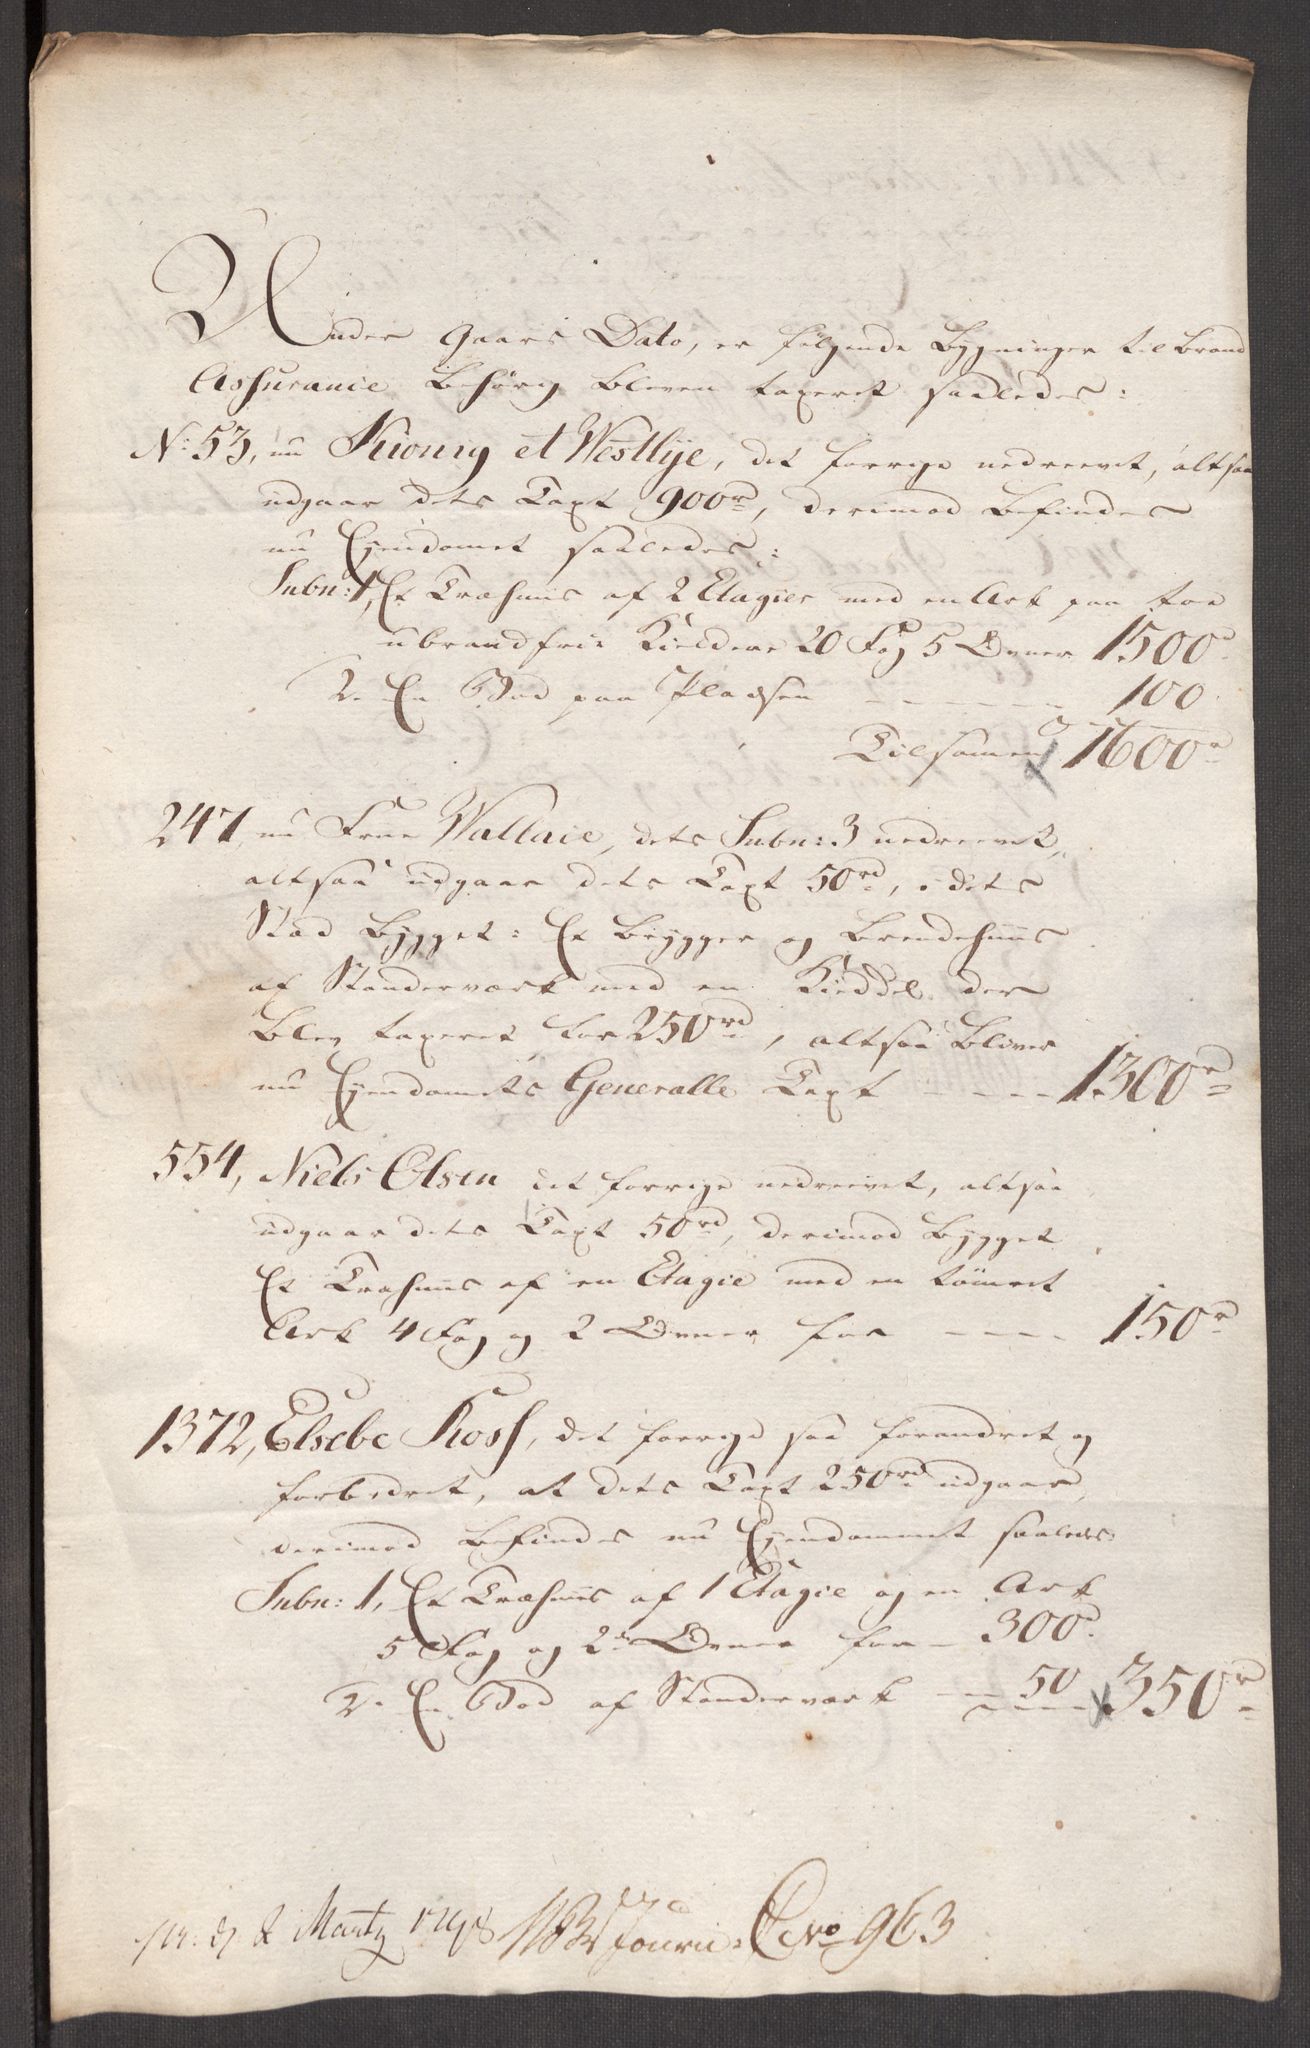 Under Gaars Dato, er følgende Bygninger til Brand
Assurance behørig bleven taxeret saaledes:
No: 53, nu Kionig et Westlye, det forrige nedreevet, altsaa
udgaar dets Taxt 900rd, derimod befindes
nu Ejendomet saaledes:
Subn: 1, Et Træhuus af 2 Etagier med en Ark paa toe
ubrandfrie Kieldere 20 Fag 5 Ovner 1500rd
2. En Bod paa Pladsen 100
Tilsamen 1600rd
247, nu Frue Wallace, dets Subn: 3 nedreevet,
altsaa udgaar dets Taxt 50rd, i dets
Stæd bygget: Et Brygger og Brendehuus
af Standerværk med en Kieddel der
blev taxeret for 250rd, altsaa bliver
nu Ejendomets Generalle Taxt 1300rd
554, Niels Olsen det forrige nedreevet, altsaa
udgaar dets Taxt 50rd, derimod bygget
Et Træhuus af en Etagie med en tømret
Ark 4 Fag og 2 Ovner for 150rd
1372, Elsebe Ross, det forrige saa forandret og
forbedret, at dets Taxt 250rd udgaar,
derimod befindes nu Ejendommet saaledes
Subn: 1, Et Træhuus af 1 Etagie og en Ark
5 Fag og 2de Ovner for 300rd
2. En Bod af Standerværk 50 350rd
Martz 1798 Journ No 963